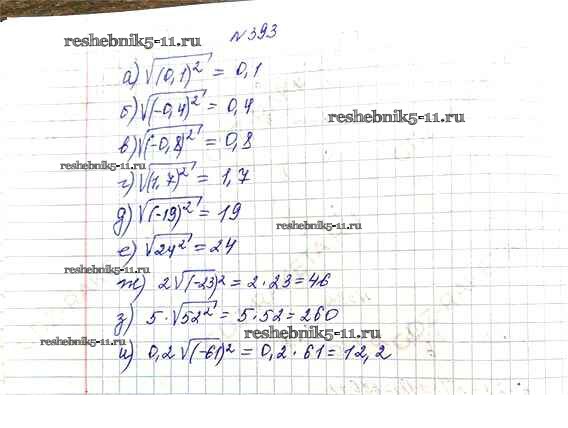 №393
reshebnik5-11.ru
а) √(0,1)² = 0,1
б) √(-0,4)² = 0,4
reshebnik5-11.ru
в) √(-0,8)² = 0,8
reshebnik5-11.ru
г) √(1,7)² = 1,7
д) √(-19)² = 19
reshebnik5-11.ru
е) √24² = 24
reshebnik5-11.ru
ж) 2√(-23)² = 2·23=46
з) 5·√52² = 5·52=260
reshebnik5-11.ru
reshebnik5-11.ru
и) 0,2√(-61)² = 0,2·61=12,2